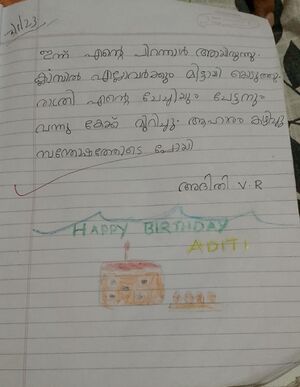 ഇന്ന് എന്റെ പിറന്നാൾ ആയിരുന്നു.
ക്ലാസിൽ എല്ലാവർക്കും മിട്ടായി കൊടുത്തു.
രാത്രി എന്റെ ചേച്ചിയും ചേട്ടനും
വന്നു കേക്ക് മുറിച്ചു. ആഹാരം കഴിച്ചു
സന്തോഷത്തോടെ പോയി
അദിതി V. R
HAPPY BIRTHDAY
ADITI